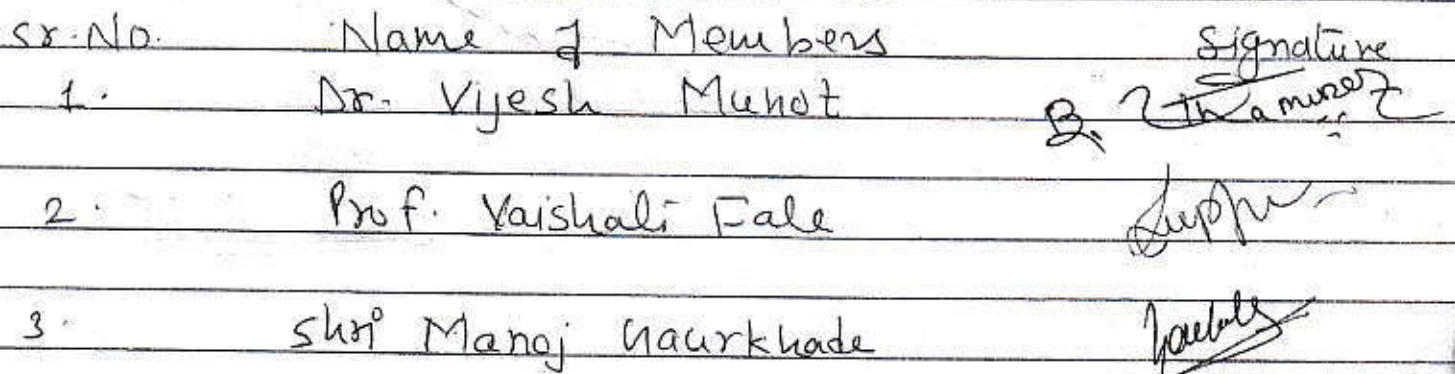 Sr. No. Name of Members Signature
1. Dr. Vijesh Munot B.
2. Prof. Vaishali Fale
3. Shri Manoj Gaurkhade